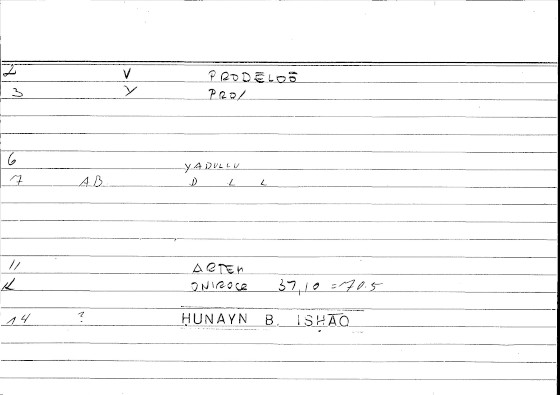 2 V PRODĒLOS
3 Y PRO/
6 YADULLU
7 AB D L L
11 ARTEM
12 ONIROCR 37,10 = 70.5
14 ? ḤUNAYN B. ISḤĀQ